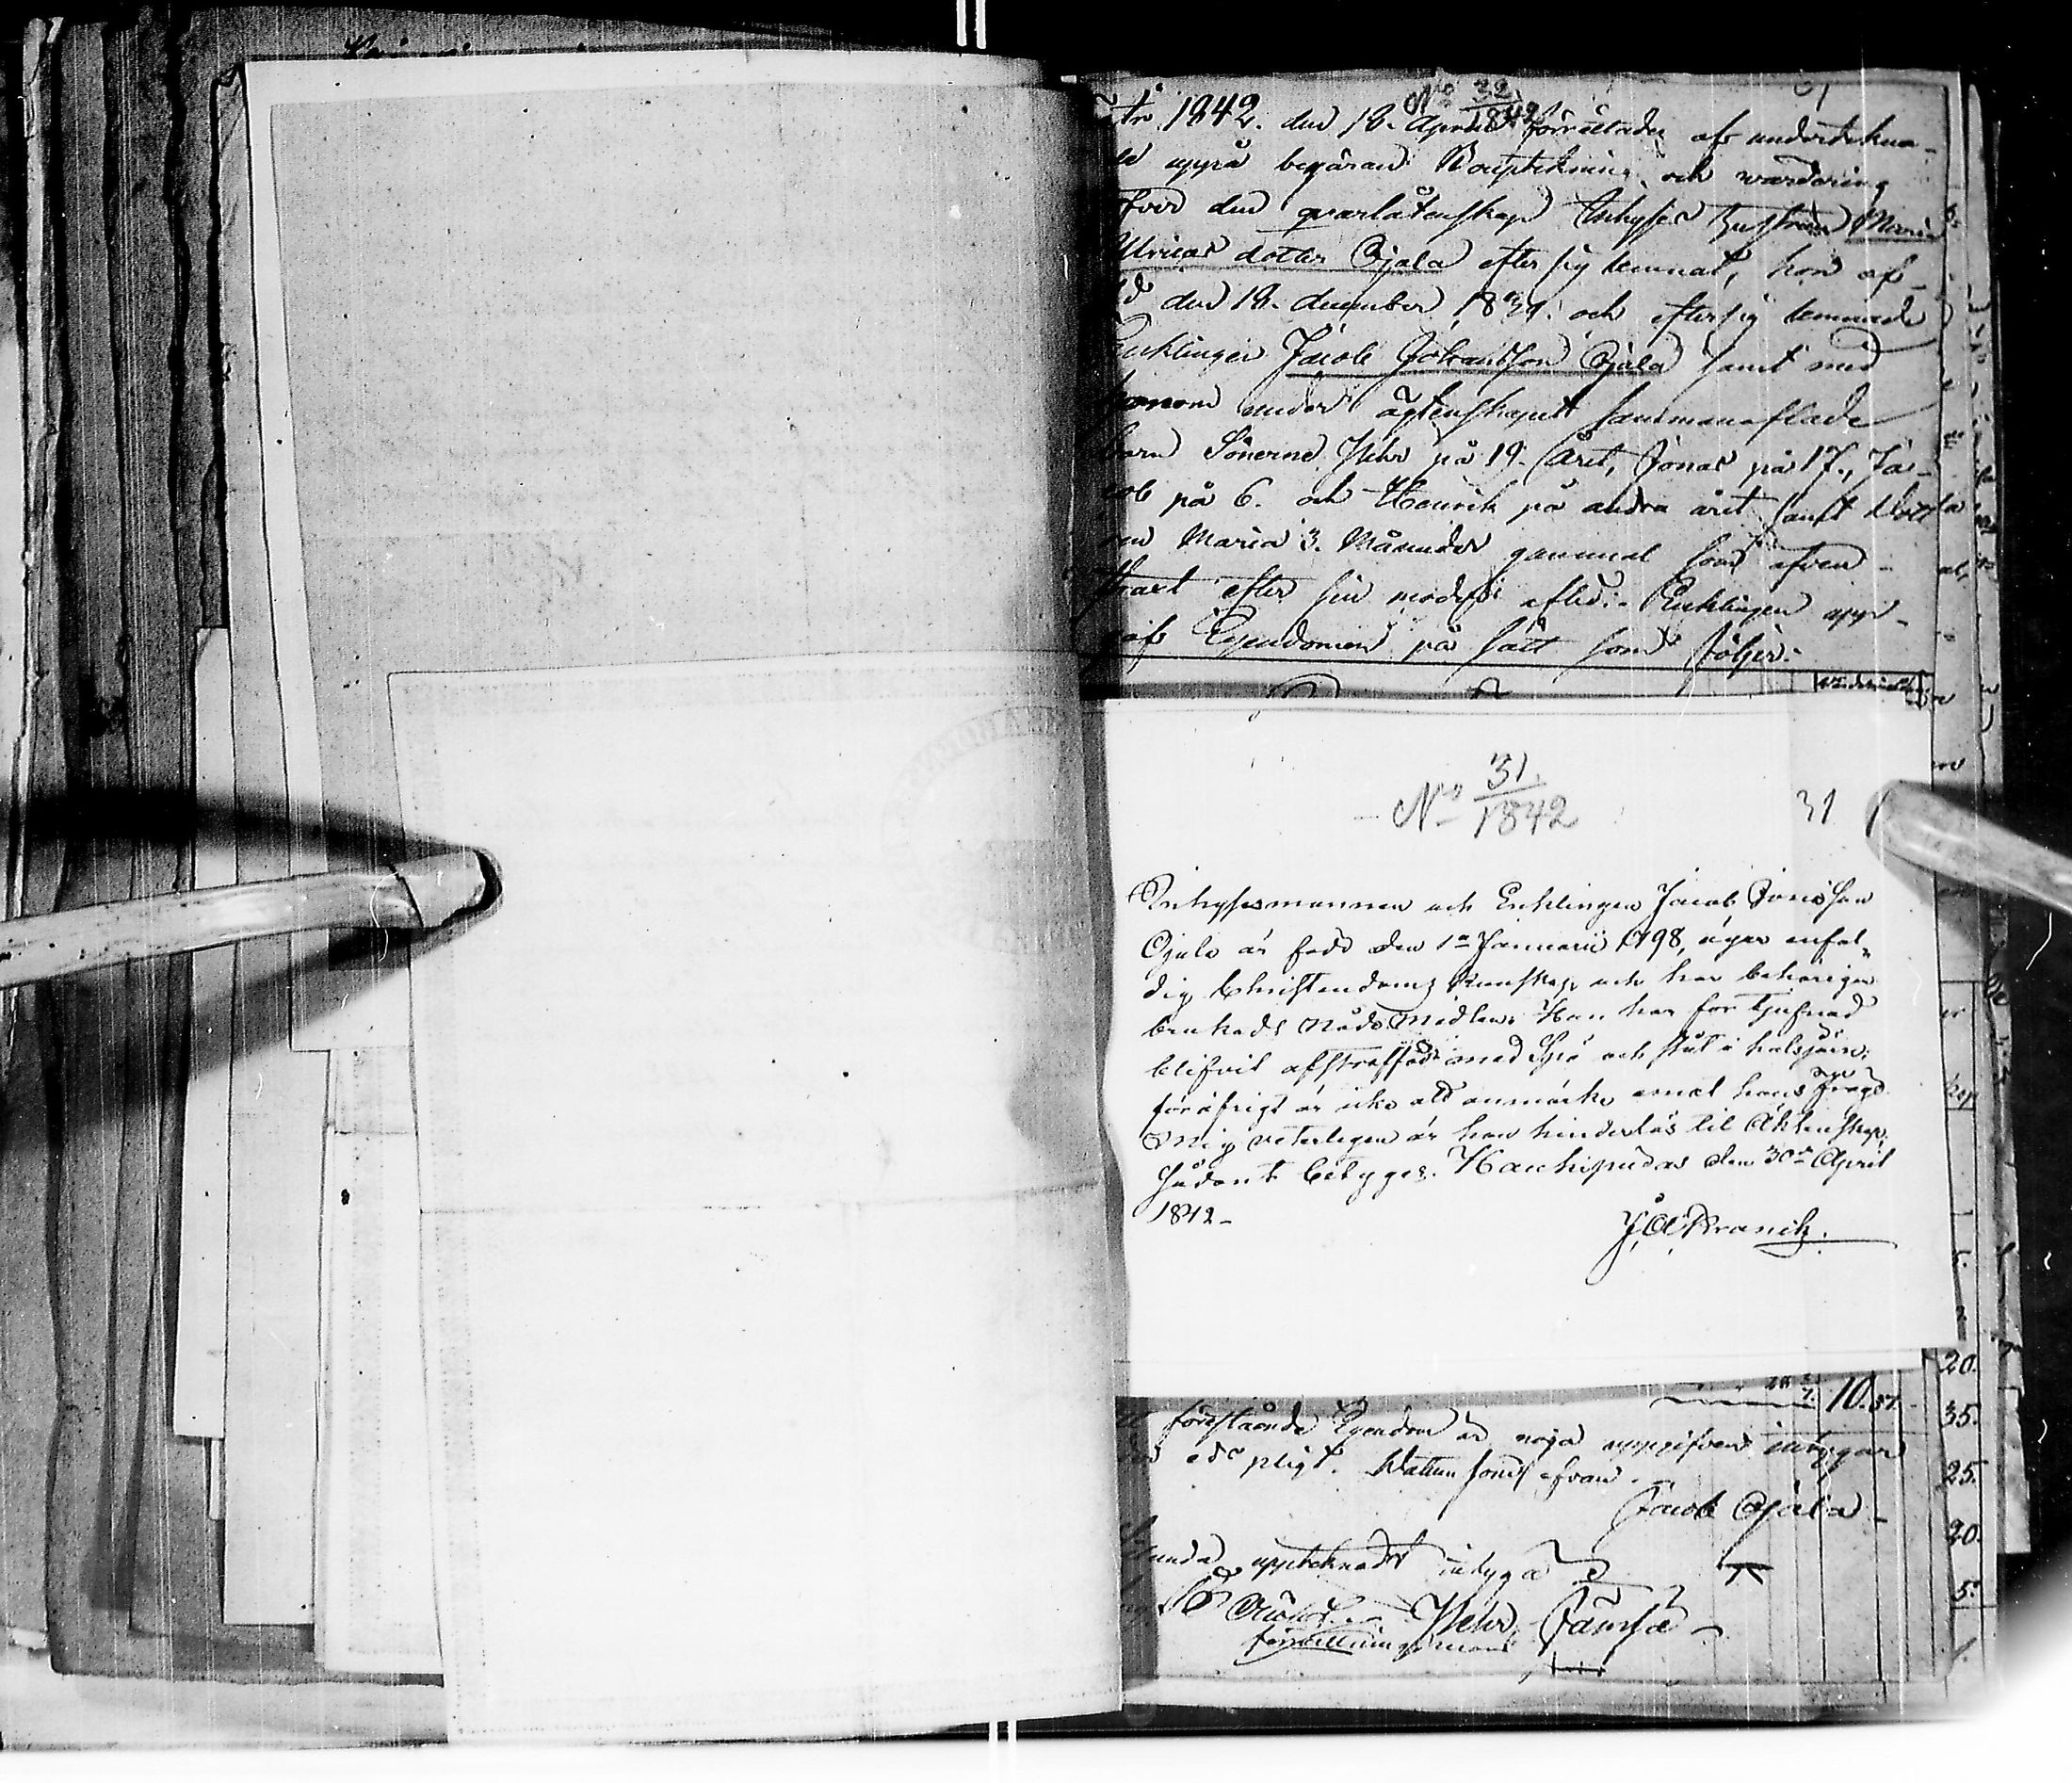 No 32/1842
1842. den 18. April förrättades af underteckna-
de uppå begäran Bouptekning och wärdering
öfver den qvarlåtenskap Inhyses Hustrun Maria
Ulricas dotter Ojala efter sig lemnat, hon af-
led den 18. december 1839. och efter sig lemnade
Encklingen Jacob Johansson Ojala samt med
honom under ägtenskapet sammanaflade
barn Sönerne Pehr på 19. Året, Jonas på 17., Ja-
cob på 6. och Henrik på andra året samt Dott
ren Maria 3. Månader gammal som äfven-
straxt efter sin moder afled:- Encklingen upp-
gaf Egendomen på sätt som följer:
No 31/1842
31
Inhysesmannen och Encklingen Jacob Jonsson
Ojala är född den 1a Januarii 1798, äger enfal-
dig Christendoms kunskap och har behörigen
brukads Nåde Medlen. Han har för tjufnad
blifvit afstraffad med Spö och stått i halsjern;
föröfrigt är icke att anmärka emot hans frägd
Mig veterligen är han hinderlös til Äktenskap.
Sådant betygas. Haukipudas den 30de April
1842-
J. A. Kranck.
10.57.
20.
35.
25.
20.
5.
förestående Egendom är noga uppgifven intygar
eds pligt. Datum som ofvan.
Jacob Ojala-
upptecknadt intyga
förrättningsman
Pehr Jämsä